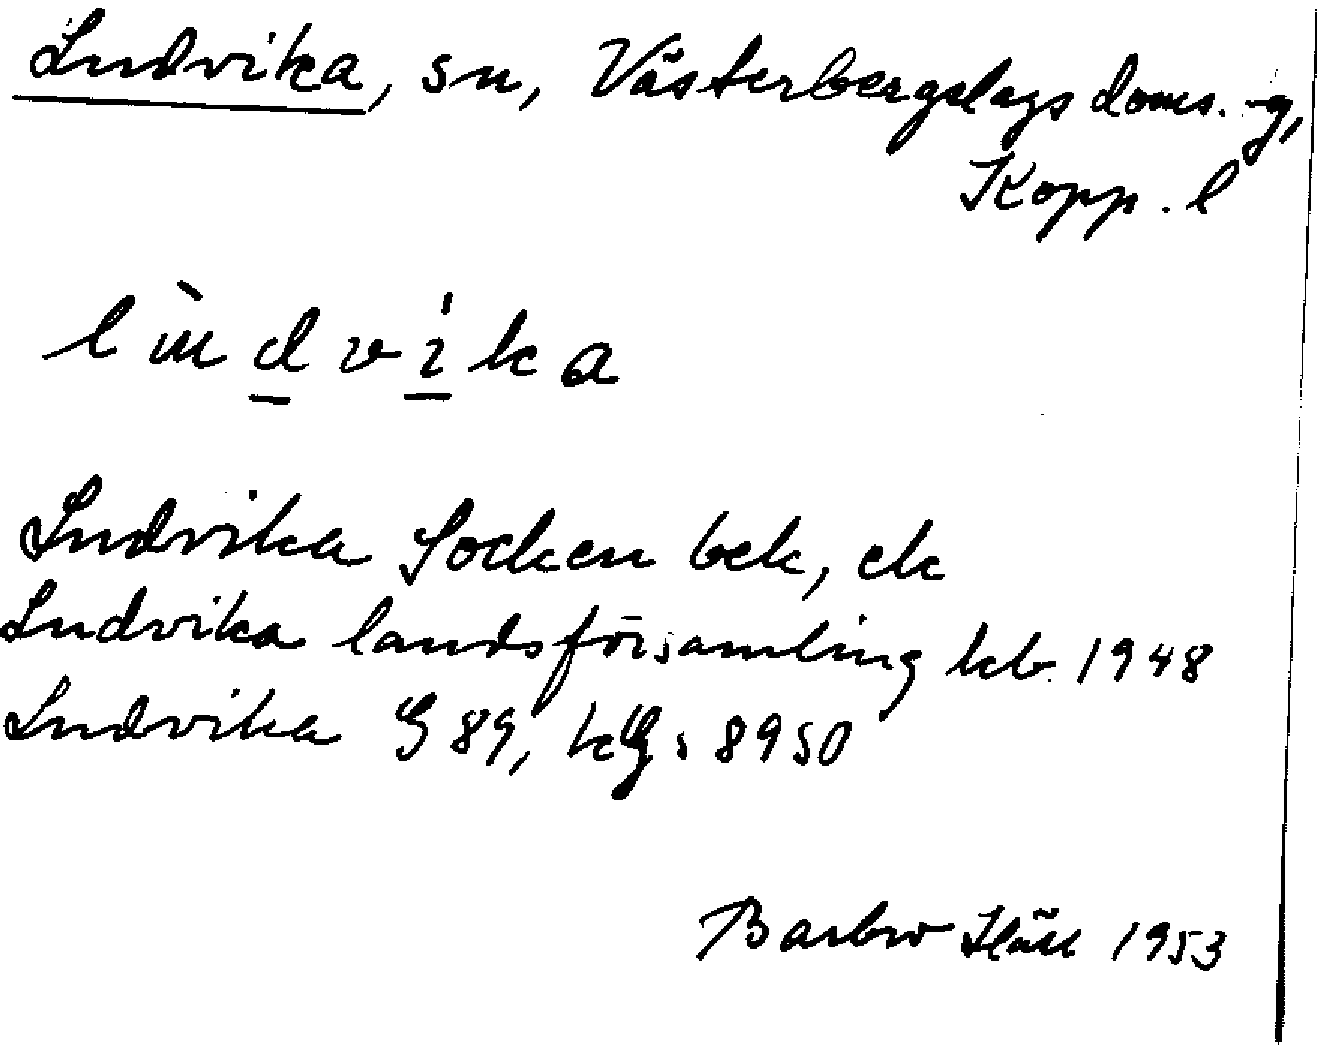 Ludvika, sn, Västerbergslags doms.-g,
Kopp. l
Ludvika Socken bek, ek
Ludvika landsförsamling kb 1948
Ludvika G 89, kG: 8950
Barbro Häll 1953